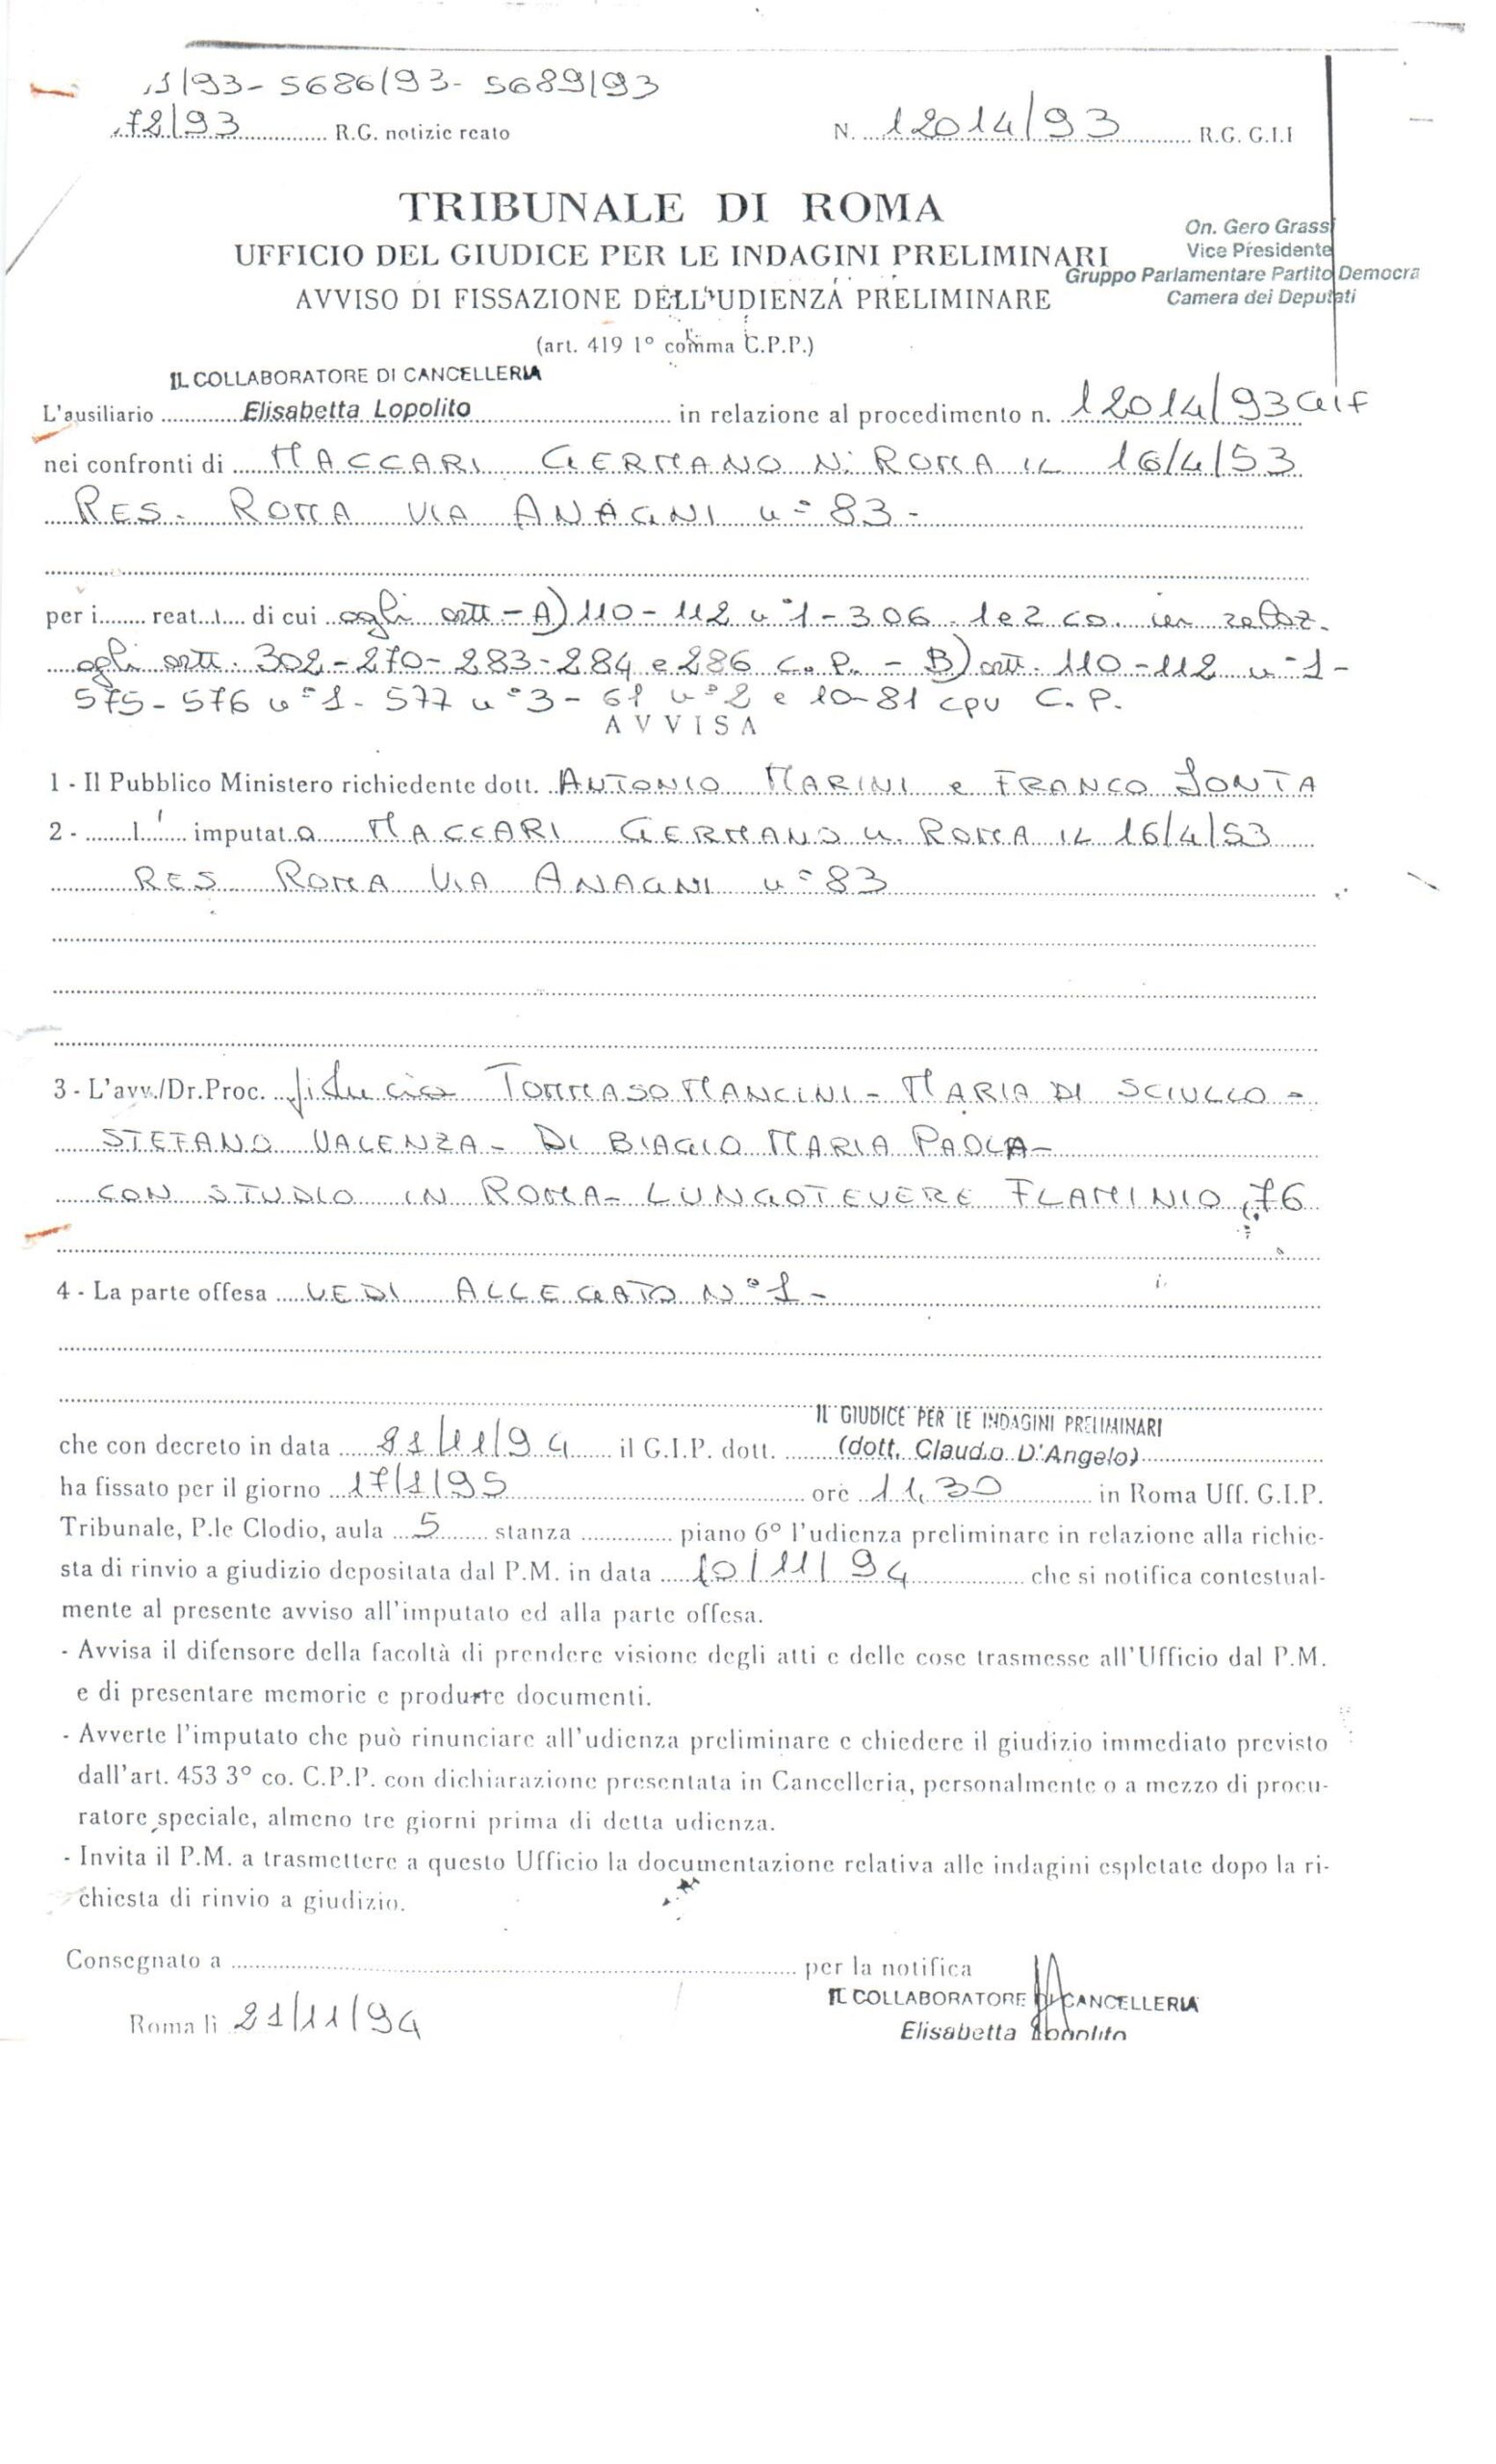 1/93- 5686/93- 5689/93
72/93 R.G. notizie reato N. 12014/93 R.G. G.I.I
TRIBUNALE DI ROMA
On. Gero Grass
UFFICIO DEL GIUDICE PER LE INDAGINI PRELIMINARI
Vice Presidente
Gruppo Parlamentare Partito Democra
AVVISO DI FISSAZIONE DELL'UDIENZA PRELIMINARE
Camera dei Deputati
(art. 419 1° comma C.P.P.)
IL COLLABORATORE DI CANCELLERIA
L'ausiliario Elisabetta Lopolito in relazione al procedimento n. 12014/93 GIP
nei confronti di MACCARI GERMANO N. ROMA IL 16/4/53
RES. ROMA VIA ANAGNI n° 83 -
per i reat i di cui agli artt - A) 110 - 112 n°1 - 306 1 e 2 co. in relaz.
agli artt. 302 - 270 - 283 - 284 e 286 C.P. - B) artt. 110 - 112 n°1 -
575 - 576 n°1 - 577 n°3 - 61 n°2 e 10 - 81 cpv C.P.
AVVISA
1 - Il Pubblico Ministero richiedente dott. ANTONIO MARINI e FRANCO IONTA
2 - l' imputato MACCARI GERMANO n. ROMA IL 16/4/53
RES ROMA VIA ANAGNI n° 83
3 - L'avv./Dr.Proc. fiducia TOMMASO MANCINI - MARIA DI SCIULLO -
STEFANO VALENZA - DI BIAGIO MARIA PAOLA -
CON STUDIO IN ROMA - LUNGOTEVERE FLAMINIO, 76
4 - La parte offesa VEDI ALLEGATO N° 1 -
IL GIUDICE PER LE INDAGINI PRELIMINARI
che con decreto in data 21/11/94 il G.I.P. dott. (dott. Claudio D'Angelo)
ha fissato per il giorno 17/1/95 ore 11,30 in Roma Uff. G.I.P.
Tribunale, P.le Clodio, aula 5 stanza piano 6° l'udienza preliminare in relazione alla richie-
sta di rinvio a giudizio depositata dal P.M. in data 10/11/94 che si notifica contestual-
mente al presente avviso all'imputato ed alla parte offesa.
- Avvisa il difensore della facoltà di prendere visione degli atti e delle cose trasmesse all'Ufficio dal P.M.
e di presentare memorie e produrre documenti.
- Avverte l'imputato che può rinunciare all'udienza preliminare e chiedere il giudizio immediato previsto
dall'art. 453 3° co. C.P.P. con dichiarazione presentata in Cancelleria, personalmente o a mezzo di procu-
ratore speciale, almeno tre giorni prima di detta udienza.
- Invita il P.M. a trasmettere a questo Ufficio la documentazione relativa alle indagini espletate dopo la ri-
chiesta di rinvio a giudizio.
Consegnato a per la notifica
IL COLLABORATORE DI CANCELLERIA
Roma lì 21/11/94 Elisabetta Lopolito